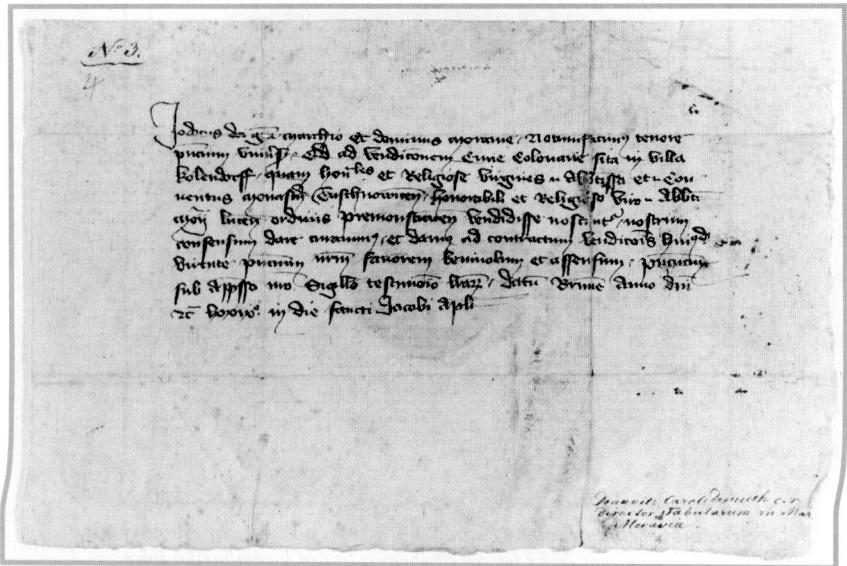 No 3.
4
Jodocus dei gra marchio et dominus moravie Notumfacimus tenore
pncium univsis Qd ad vendicionem Curie Colonarie site in villa
Kolendorff quam honles et Religiose virgines n Abbtissa et n Con
ventus monastij honorabili et Religioso viro n Abbti
mon lucen ordinis premonstraten vendidisse noscunt nostrum
consensum dare et damus ad contractum vendicois huiqd
virtute pncium nrm favorem benivolum et assensum
sub Appsso nro Sigillo testimonio lrar datu Brunne Anno dni
in die sancti Jacobi Apli
director Tabularum in Mar
Moraviae.